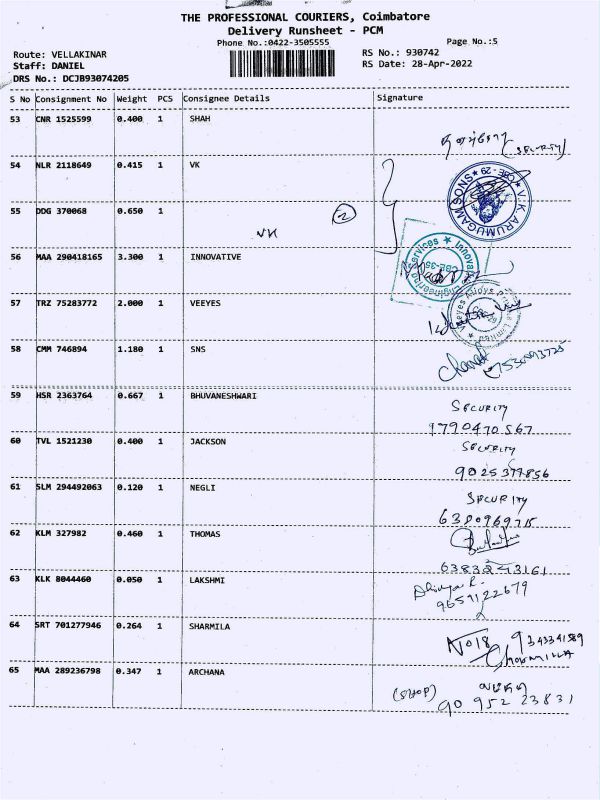 THE PROFESSIONAL COURIERS, Coimbatore
Delivery Runsheet - PCM
Phone No.:0422-3505555 Page No.:5
Route: VELLAKINAR RS No.: 930742
Staff: DANIEL RS Date: 28-Apr-2022
DRS No.: DCJB93074205
S No Consignment No Weight PCS Consignee Details Signature
53 CNR 1525599 0.400 1 SHAH
(SECURITY)
54 NLR 2118649 0.415 1 VK
V.K.ARUMUGAM SONS ★ CBE-29 ★
55 DDG 370068 0.650 1
VK 2
56 MAA 290418165 3.300 1 INNOVATIVE
Innovative Engineering Services ★ CBE-35
57 TRZ 75283772 2.000 1 VEEYES
Veeyes Alloys Private Limited ★
58 CMM 746894 1.180 1 SNS
59 HSR 2363764 0.667 1 BHUVANESHWARI
SECURITY
1790470567
60 TVL 1521230 0.400 1 JACKSON
SECURITY
9025377856
61 SLM 294492063 0.120 1 NEGLI
SECURITY
6380969715
62 KLM 327982 0.460 1 THOMAS
6383243161
63 KLK 8044460 0.050 1 LAKSHMI
9659122679
64 SRT 701277946 0.264 1 SHARMILA
N018 9343341589
SHARMILLA
65 MAA 289236798 0.347 1 ARCHANA
(SHOP)
90 952 23831